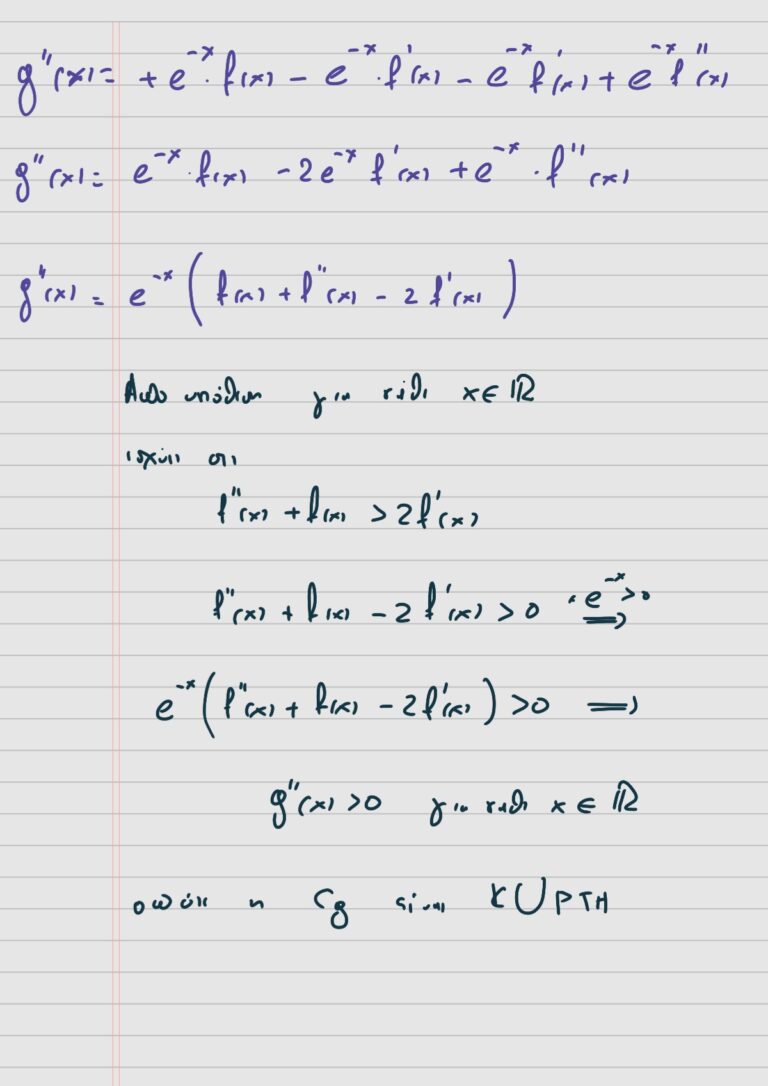 g''(x) = + e^{-x} · f(x) - e^{-x} · f'(x) - e^{-x} f'(x) + e^{-x} f''(x)
g''(x) = e^{-x} · f(x) - 2e^{-x} f'(x) + e^{-x} · f''(x)
g''(x) = e^{-x} ( f(x) + f''(x) - 2 f'(x) )
Από υπόθεση για κάθε x ∈ ℝ
ισχύει ότι
f''(x) + f(x) > 2f'(x)
f''(x) + f(x) - 2 f'(x) > 0 · e^{-x} > 0 ⟹
e^{-x} ( f''(x) + f(x) - 2f'(x) ) > 0 ⟹
g''(x) > 0 για κάθε x ∈ ℝ
οπότε η Cg είναι ΚUΡΤΗ